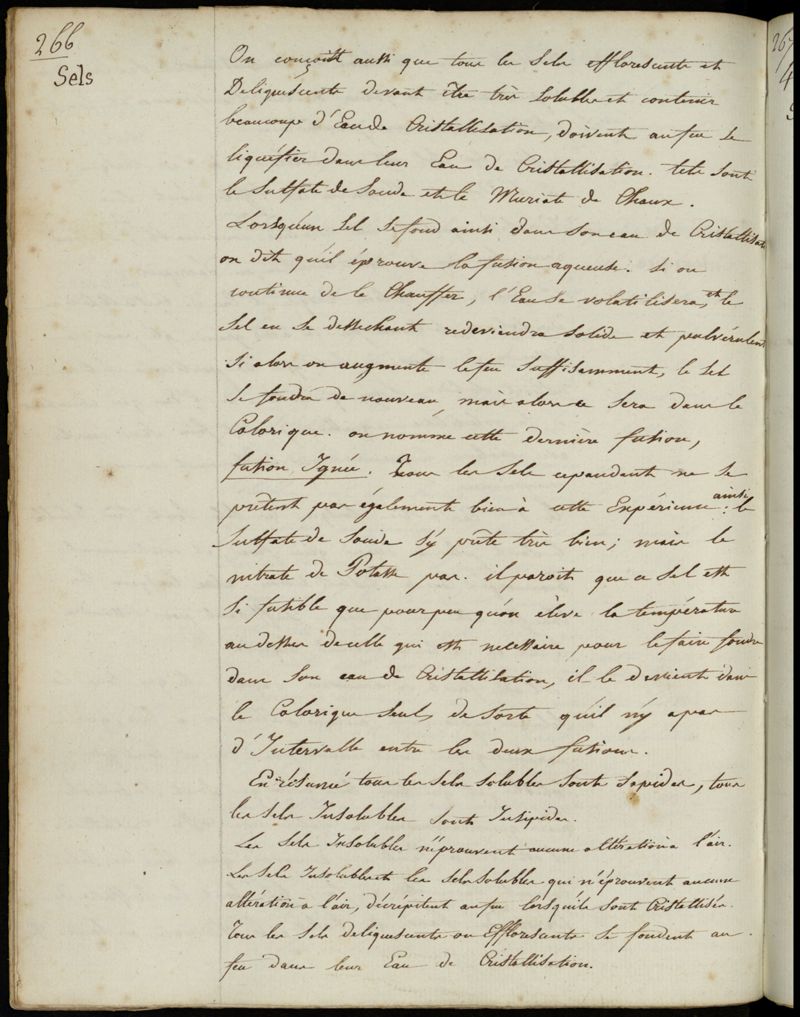 266
Sels
On conçoit aussi que tous les Sels efflorescents et
Deliquescents devant être très solubles et contenir
beaucoup d'Eau de Cristallisation, doivent au feu se
liquéfier dans leur Eau de Cristallisation. tels sont
le Sulfate de Soude et le Muriate de Chaux.
Lorsqu'un Sel se fond ainsi dans son eau de Cristallisati
on dit qu'il éprouve la fusion aqueuse. Si on
continue de le Chauffer, l'Eau se volatilisera, et le
Sel en se dessechant redeviendra solide et pulvérulent
Si alors on augmente le feu suffisamment, le Sel
se fondra de nouveau, mais alors ce sera dans le
Calorique. on nomme cette dernière fusion,
fusion Ignée. Tous les Sels cependant ne se
prêtent pas également bien à cette Expérience: ainsi le
Sulfate de Soude s'y prête très bien; mais le
nitrate de Potasse pas. il paroit que ce Sel est
Si fusible que pour peu qu'on élève la température
au dessus de celle qui est necessaire pour le faire fondre
dans son eau de Cristallisation, il le devient dans
le Calorique seul, de sorte qu'il n'y a pas
d'Intervalle entre les deux fusions.
En résumé tous les sels solubles sont sapides, tous
les sels Insolubles sont Insipides.
Les Sels Insolubles n'éprouvent aucune altération à l'air.
Les Sels Insolubles et les sels solubles qui n'éprouvent aucune
altération à l'air, décrépitent au feu lorsqu'ils sont Cristallisés.
Tous les sels deliquescents ou Efflorescents se fondent au
feu dans leur Eau de Cristallisation.
267